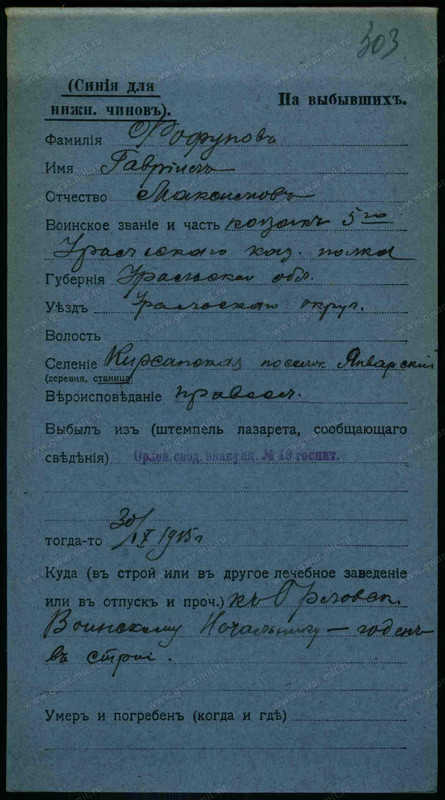 303
(Синія для
нижн. чиновъ).
На выбывшихъ.
Фамилія
Имя Гавріилъ
Отчество Максимовъ
Воинское званіе и часть козакъ 5го
Уральскаго каз. полка
Губернія Уральская обл.
Уѣздъ Уральскаго округ.
Волость
Селеніе Кирсановская поселк. Январскій
(деревня, станица)
Вѣроисповѣданіе правосл.
Выбылъ изъ (штемпель лазарета, сообщающаго
свѣдѣнія) Орлов. свод. эвакуац. № 49 госпит.
тогда-то 30/IX 1915 г
Куда (въ строй или въ другое лечебное заведеніе
или въ отпускъ и проч.) къ Орловск.
Воинскому Начальнику — годенъ
въ строй.
Умеръ и погребенъ (когда и гдѣ)